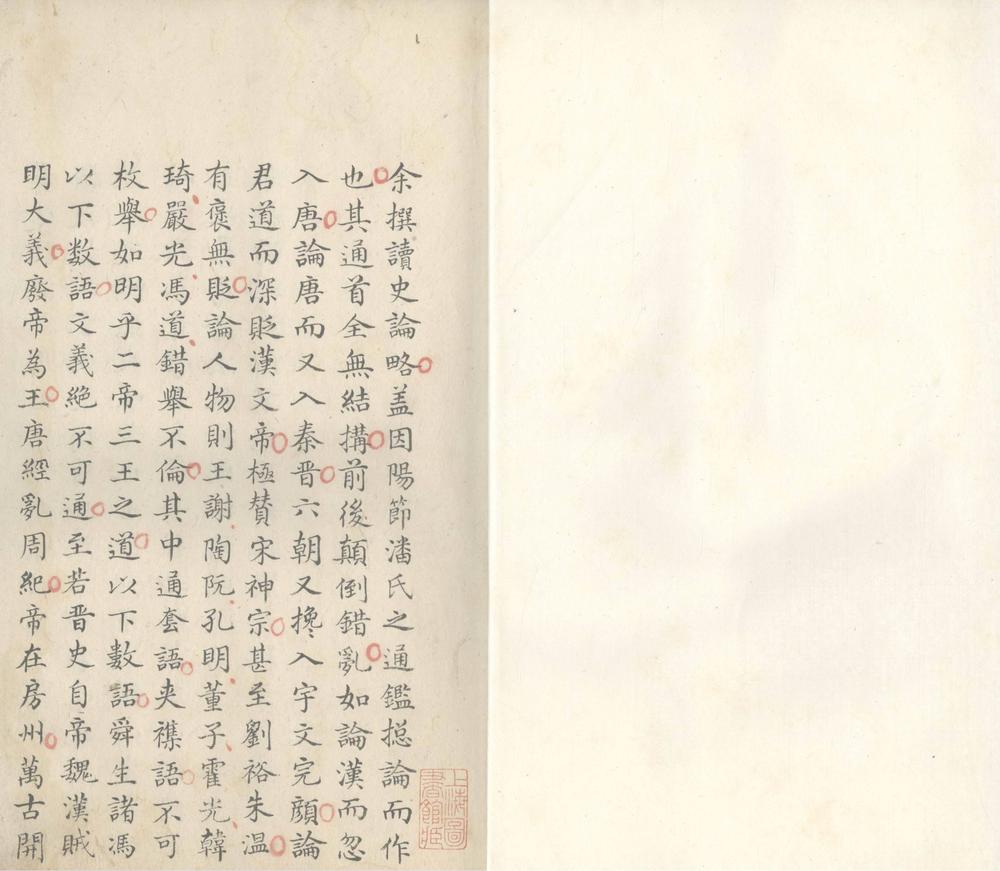 余撰讀史論略盖因陽節潘氏之通鑑揔論而作
也其通首全無結搆前後顛倒錯亂如論漢而忽
入唐論唐而又入秦晋六朝又搀入宇文完顔論
君道而深貶漢文帝極賛宋神宗甚至劉裕朱温
有襃無貶論人物則王謝陶阮孔明董子霍光韓
琦嚴光馮道錯舉不倫其中通套語夹襍語不可
枚舉如明乎二帝三王之道以下數語舜生諸馮
以下数語文義絶不可通至若晋史自帝魏漢賊
明大義廢帝為王唐經亂周紀帝在房州萬古開
上海圖書館臧